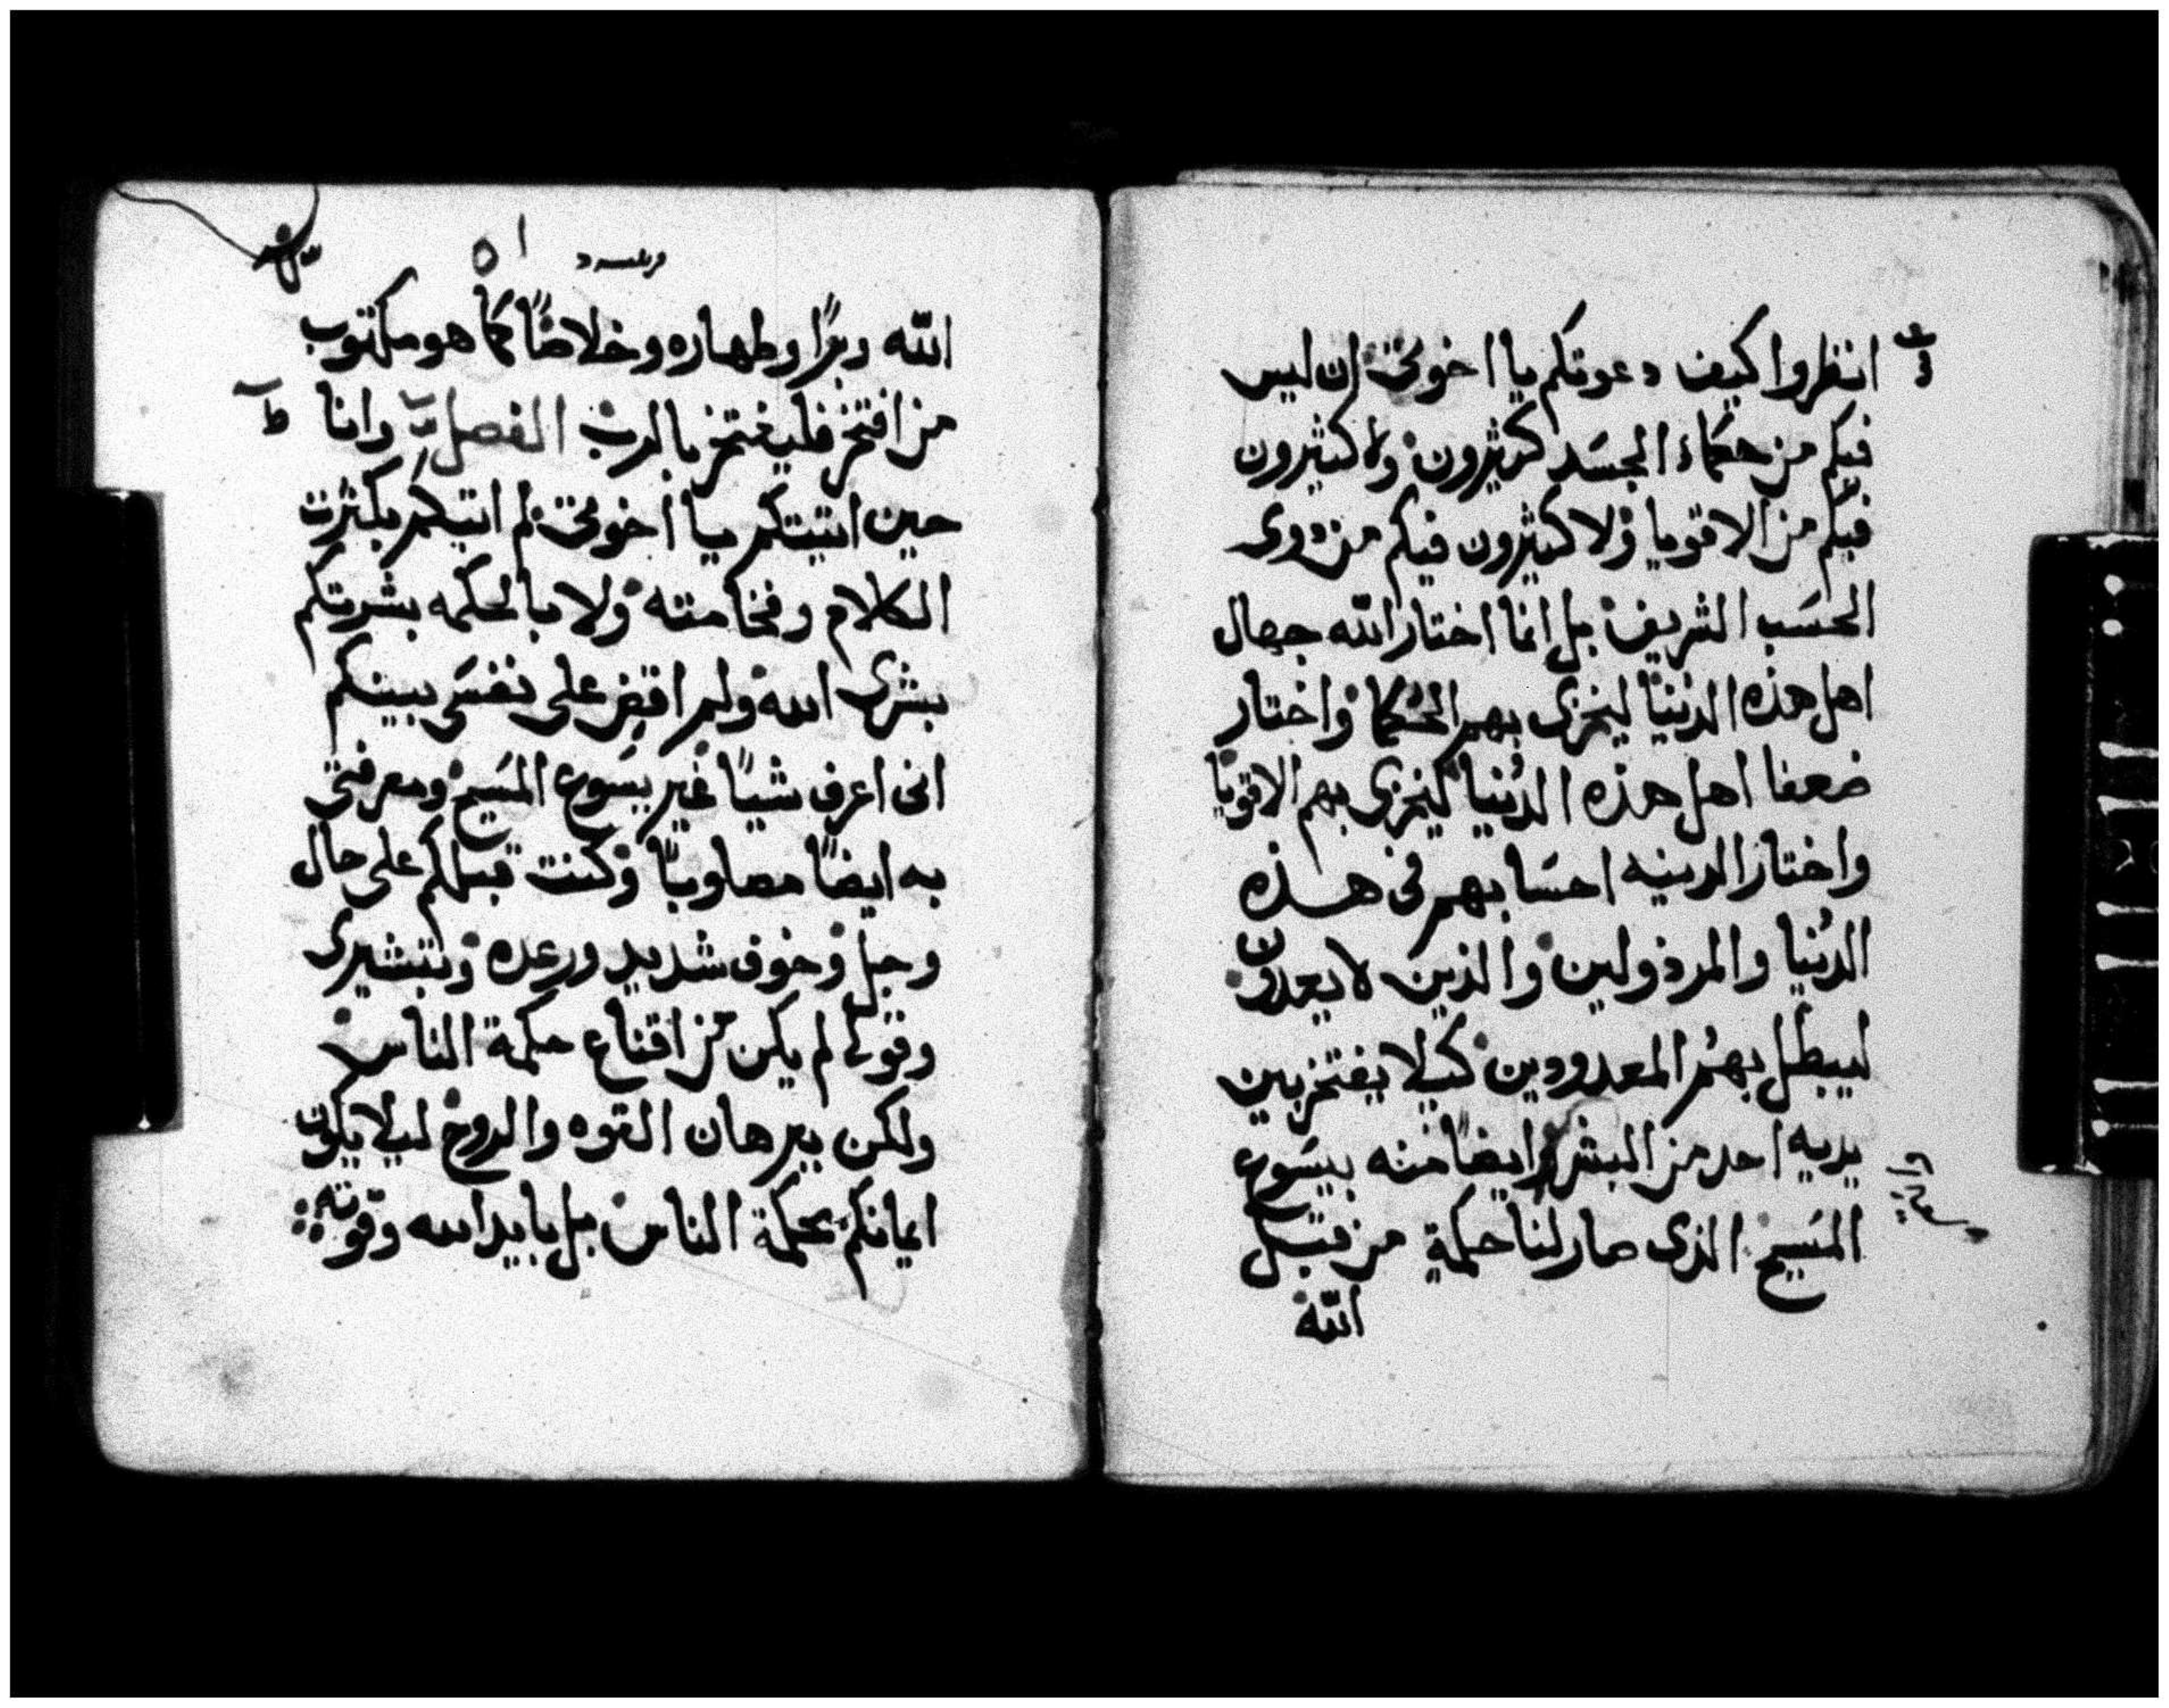 انظروا كيف دعوتكم يا اخوتى ان ليس
فيكم من حكماء الجسَد كثيرون ولا كثيرون
فيكم من الاقويا ولا كثيرون فيكم من ذوى
الحسَب الشريف بل انما اختار الله جهال
اهل هذه الدنيا ليخزى بهم الحُكما واختار
ضعفا اهل هذه الدُنيا ليخزى بهم الاقويا
واختار الدنيه احسَابهم فى هذه
الدُنيا والمرذولين والذين لا يعدون
ليبطل بهُم المعدودين كيلا يفتخر بين
يديه احد من البشر ايضاً منه بيسَوع
المسَيح الذى صار لنا حكمةٍ من قبل
الله
الله وبرًا وطهاره وخلاصًا كما هو مكتوب
من افتخر فليفتخر بالرب الفصل وانا
حين اتيتكم يا اخوتى لم اتيكم بكثرت
الكلام وفخامته ولا بالحكمه بشرتكم
بشرى الله ولم اقضِ على نفسَى بينكم
انى اعرف شياً غير يسَوع المسَيح ومعرفتى
به ايضاً مصلوباً وكنت قبلكم على حال
وجل وخوف شديد ورعده وتبشيرى
وقولى لم يكن من اقناع حكمة الناس
ولكن ببرهان القوه والروح ليلا يكون
ايمانكم بحكمة الناس بل بايد الله وقوته